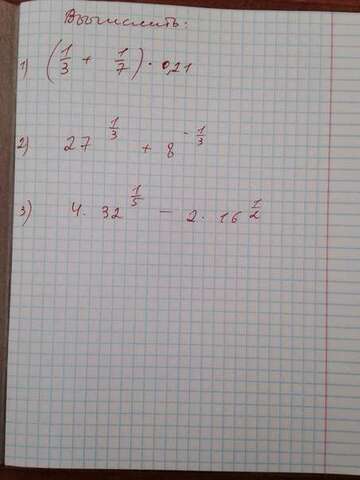 Вычислить:
1) (1/3 + 1/7) · 0,21
2) 27^(1/3) + 8^(-1/3)
3) 4 · 32^(1/5) - 2 · 16^(1/2)